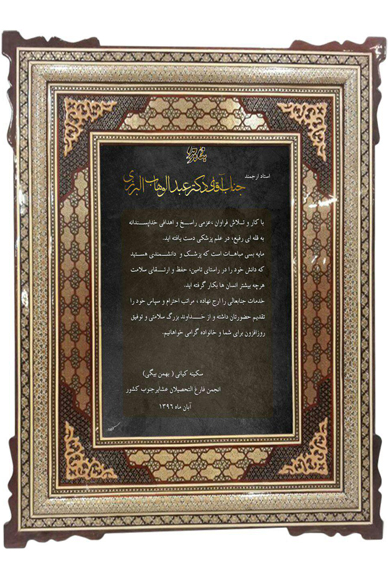 استاد ارجمند
جناب آقای دکتر عبدالوهاب البرزی
با کار و تلاش فراوان ،عزمی راسخ و اهدافی خداپسندانه
به قله ای رفیع، در علم پزشکی دست یافته اید.
مایه بسی مباهات است که پزشک و دانشمندی هستید
که دانش خود را در راستای تامین، حفظ و ارتقای سلامت
هرچه بیشتر انسان ها بکار گرفته اید.
خدمات جنابعالی را ارج نهاده ، مراتب احترام و سپاس خود را
تقدیم حضورتان داشته و از خداوند بزرگ سلامتی و توفیق
روزافزون برای شما و خانواده گرامی خواهانیم.
سکینه کیانی ( بهمن بیگی)
انجمن فارغ التحصیلان عشایرجنوب کشور
آبان ماه ۱۳۹۶